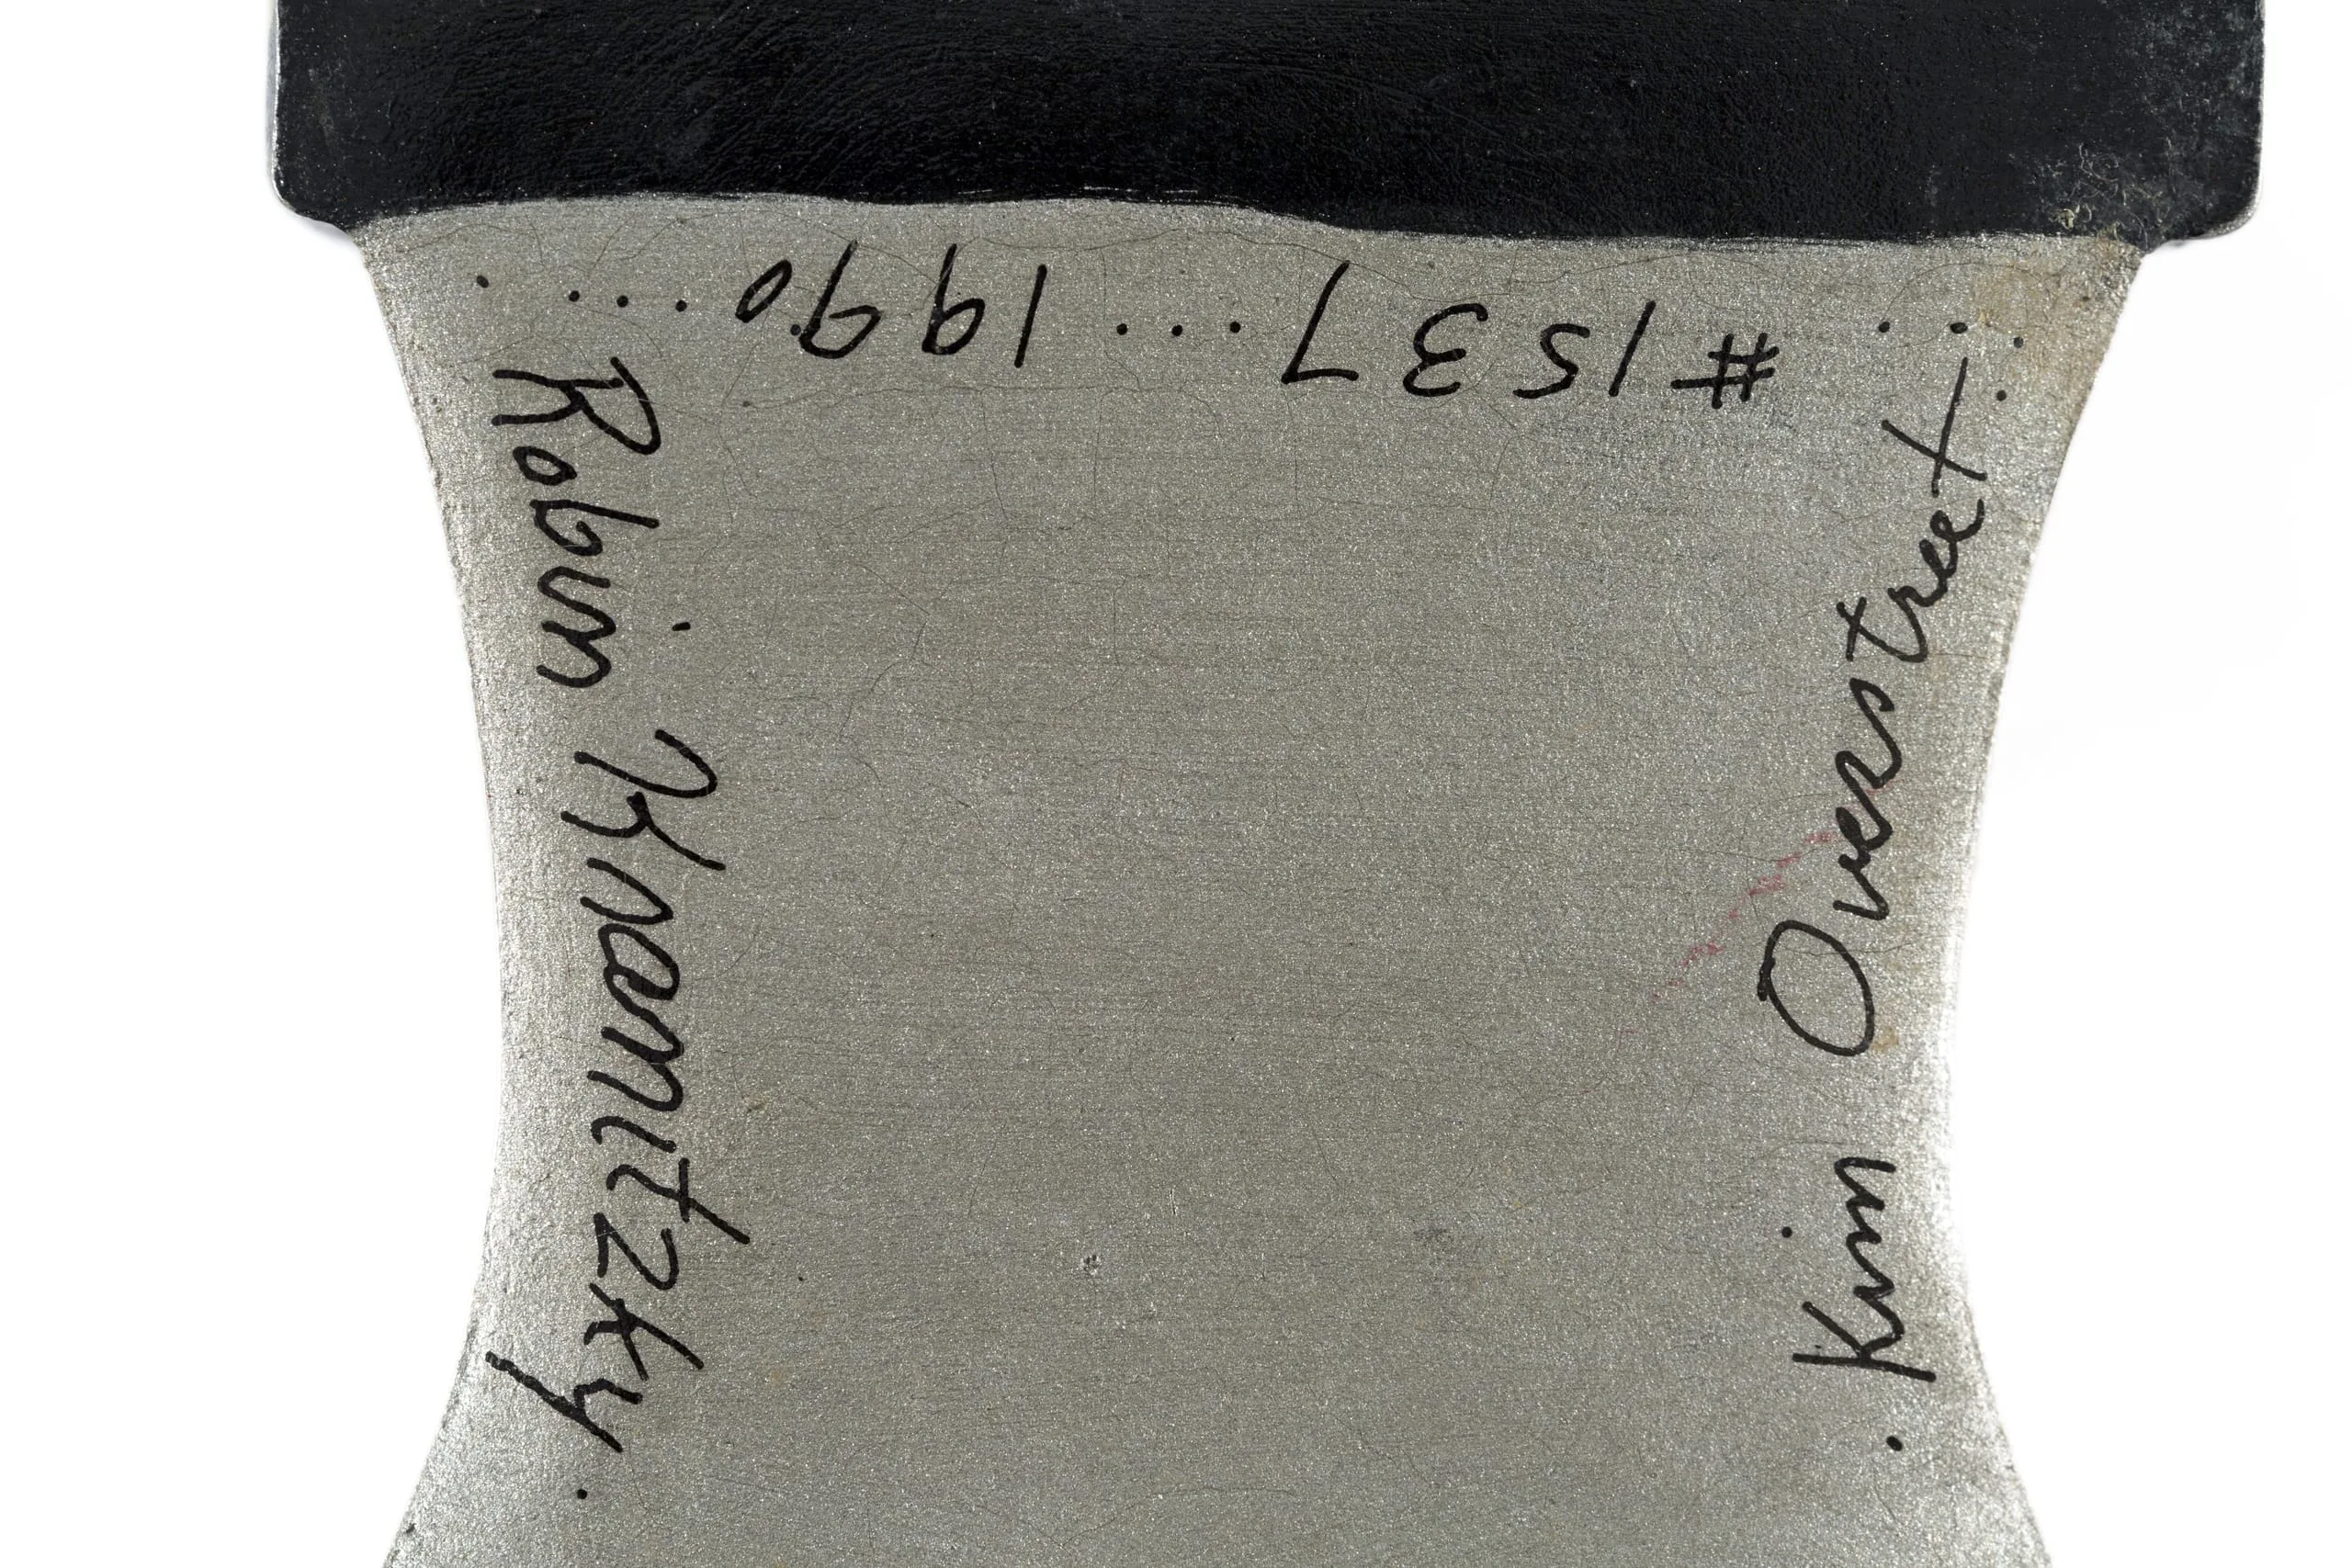 . Kim Overstreet....
#1537...1990....
Robin Kranitzky.